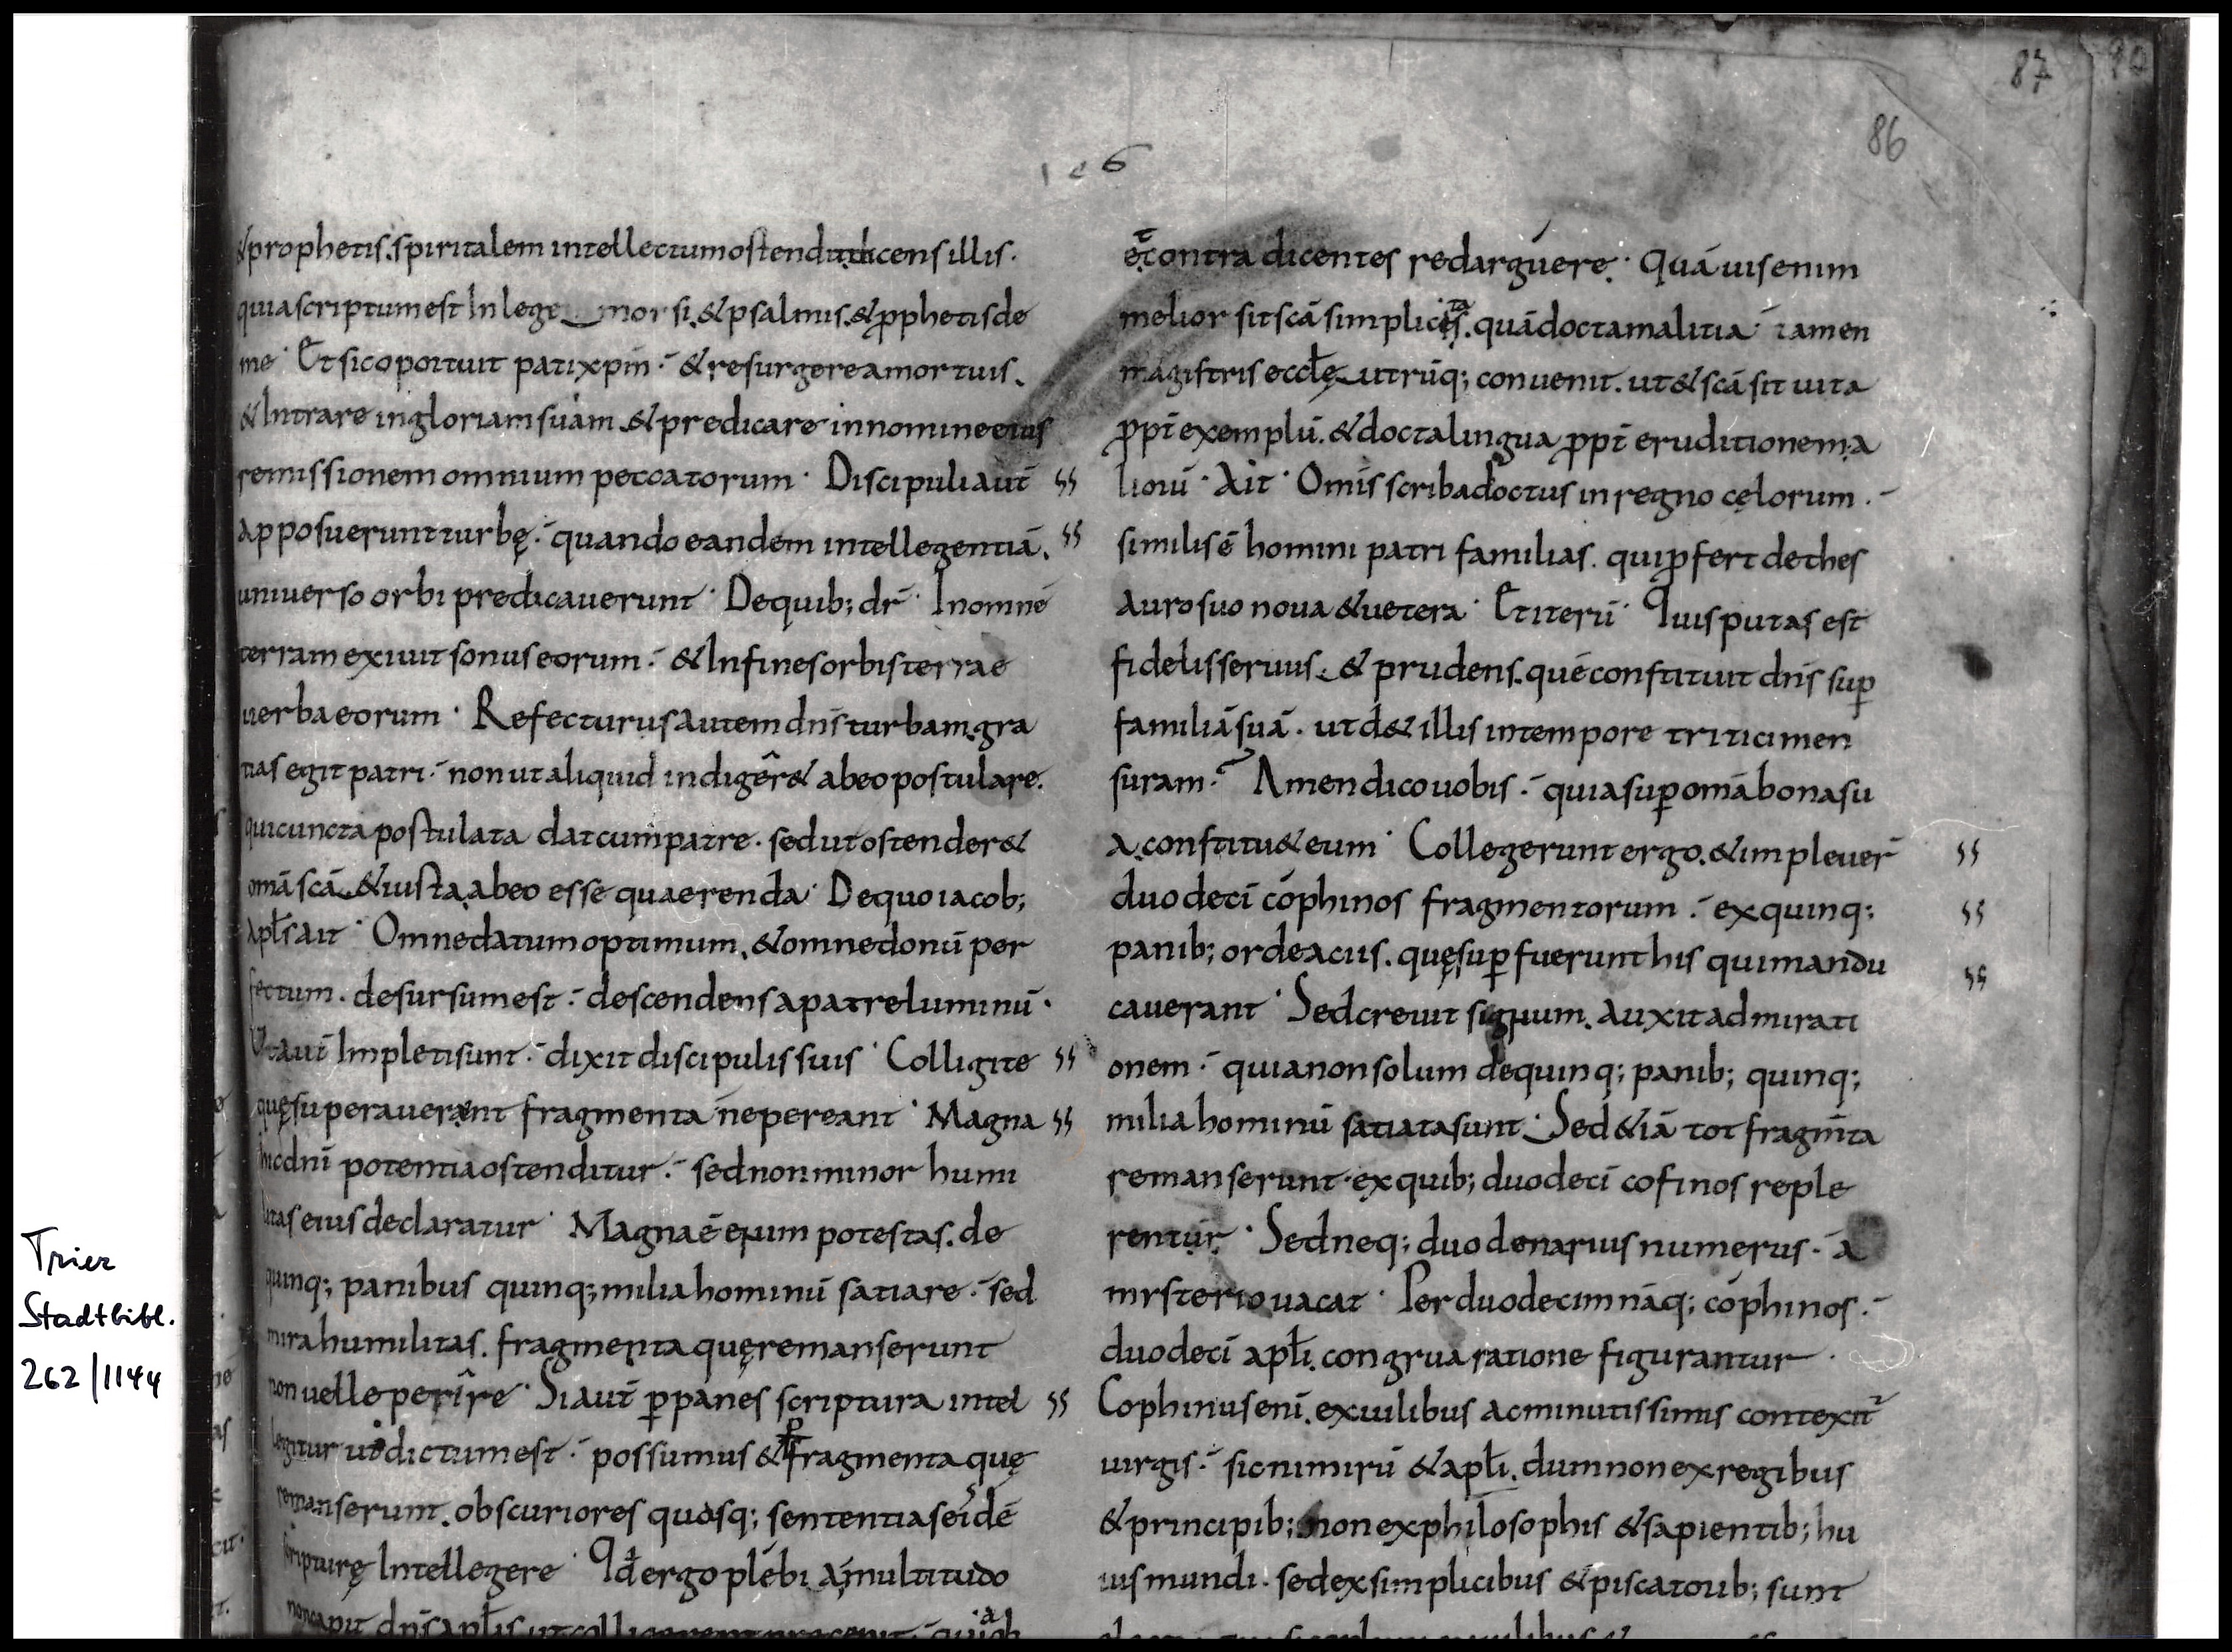 87 90
86
106
& prophetis. spiritalem intellectum ostendit dicens illis.
quia scriptum est In lege morsi. & psalmis. & pphetis de
me. Et sic oportuit pati xpm. & resurgere a mortuis.
& Intrare in gloriam suam. & predicare in nomine eius
remissionem omnium peccatorum. Discipuli aut̄
apposuerunt turbę. quando eandem intellegentiā.
universo orbi predicaverunt. De quib; dr̄. In omnē
terram exiuit sonus eorum. & In fines orbis terrae
uerba eorum. Refecturus autem dn̄s turbam. gra
tias egit patri. non ut aliquid indiger& ab eo postulare.
qui cuncta postulata dat cum patre. sed ut ostender&
om̄a sc̄a. & iusta. ab eo esse quaerenda. De quo iacob;
apłs ait. Omne datum optimum. & omne donū per
fectum. desursum est. descendens a patre luminū.
Ut aut̄ Impleti sunt. dixit discipulis suis. Colligite
quę superauerant fragmenta ne pereant. Magna
hic dn̄i potentia ostenditur. sed non minor humi
litas eius declaratur. Magna ē enim potestas. de
quinq; panibus quinq; milia hominū satiare. sed
mira humilitas. fragmenta quę remanserunt
non uelle perire. Si aut̄ p panes scriptura intel
legitur ut dictum est. possumus & p fragmenta quę
remanserunt. obscuriores quasq; sententias eidē
scripturę Intellegere. Qd ergo plebi a multitudo
non capit dn̄s apłis ut colligerent
& contra dicentes redarguere. Quāuis enim
melior sit sc̄a simplicitas. quā docta malitia. tamen
magistris eccłę utrūq; conuenit. ut & sc̄a sit uita
ppt̄ exemplū. & docta lingua ppt̄ eruditionem a
liorū. Ait. Omīs scriba doctus in regno cęlorum.
similis ē homini patri familias. qui pfert de thes
auro suo noua & uetera. Et iterū. Quis putas est
fidelis seruus. & prudens. quē constituit dn̄s sup
familiā suā. ut d& illis in tempore tritici men
suram. Amen dico uobis. quia sup om̄a bona su
a. constitu& eum. Collegerunt ergo. & impleuer̄
duodecī cophinos fragmentorum. ex quinq;
panib; ordeaciis. quę supfuerunt his qui mandu
cauerant. Sed creuit signum. auxit admirati
onem. quia non solum de quinq; panib; quinq;
milia hominū satiata sunt. Sed & iā tot fragm̄ta
remanserunt. ex quib; duodecī cofinos reple
rentur. Sed neq; duodenarius numerus. a
mysterio uacat. Per duodecim nāq; cophinos.
duodecī apłi. congrua ratione figurantur.
Cophinus enī. ex uilibus ac minutissimis contexit̄
uirgis. sic nimirū & apłi. dum non ex regibus
& principib; non ex philosophis & sapientib; hu
ius mundi. sed ex simplicibus & piscatorib; sunt
Trier
Stadtbibl.
262/1144